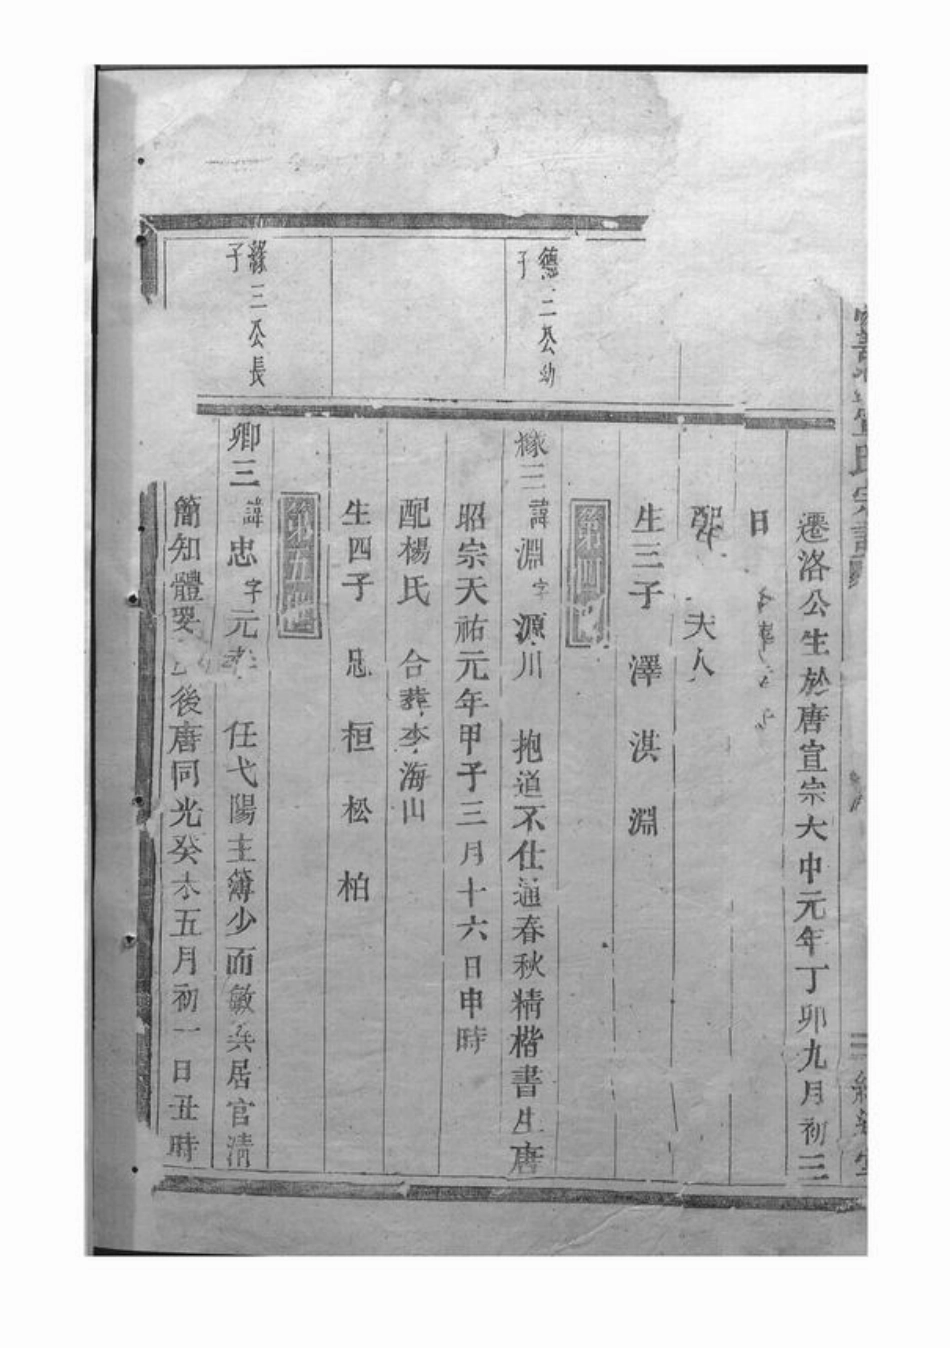 氏宗譜
三
遷洛公生於唐宣宗大中元年丁卯九月初三
日
配 夫人
生三子 澤 淇 淵
第四
德三公幼子
緣三 諱淵 字源川 抱道不仕通春秋精楷書生唐
昭宗天祐元年甲子三月十六日申時
配楊氏 合葬李海山
生四子 忠 桓 松 柏
第五
緣三公長子
卿三 諱忠 字元 任弋陽主簿少而敏 居官清
簡知體要 後唐同光癸未五月初一日丑時